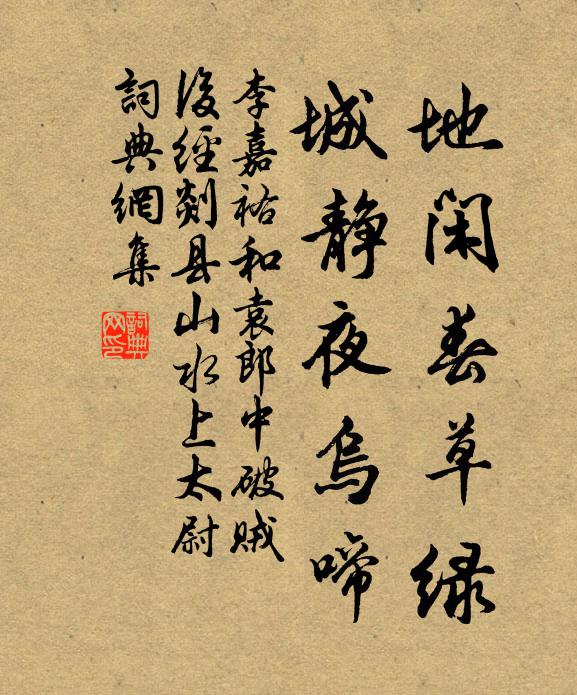 地闲春草绿
城静夜乌啼
李嘉祐和袁郎中破贼
後经剡县山水上太尉
词典網集
詞典
网印